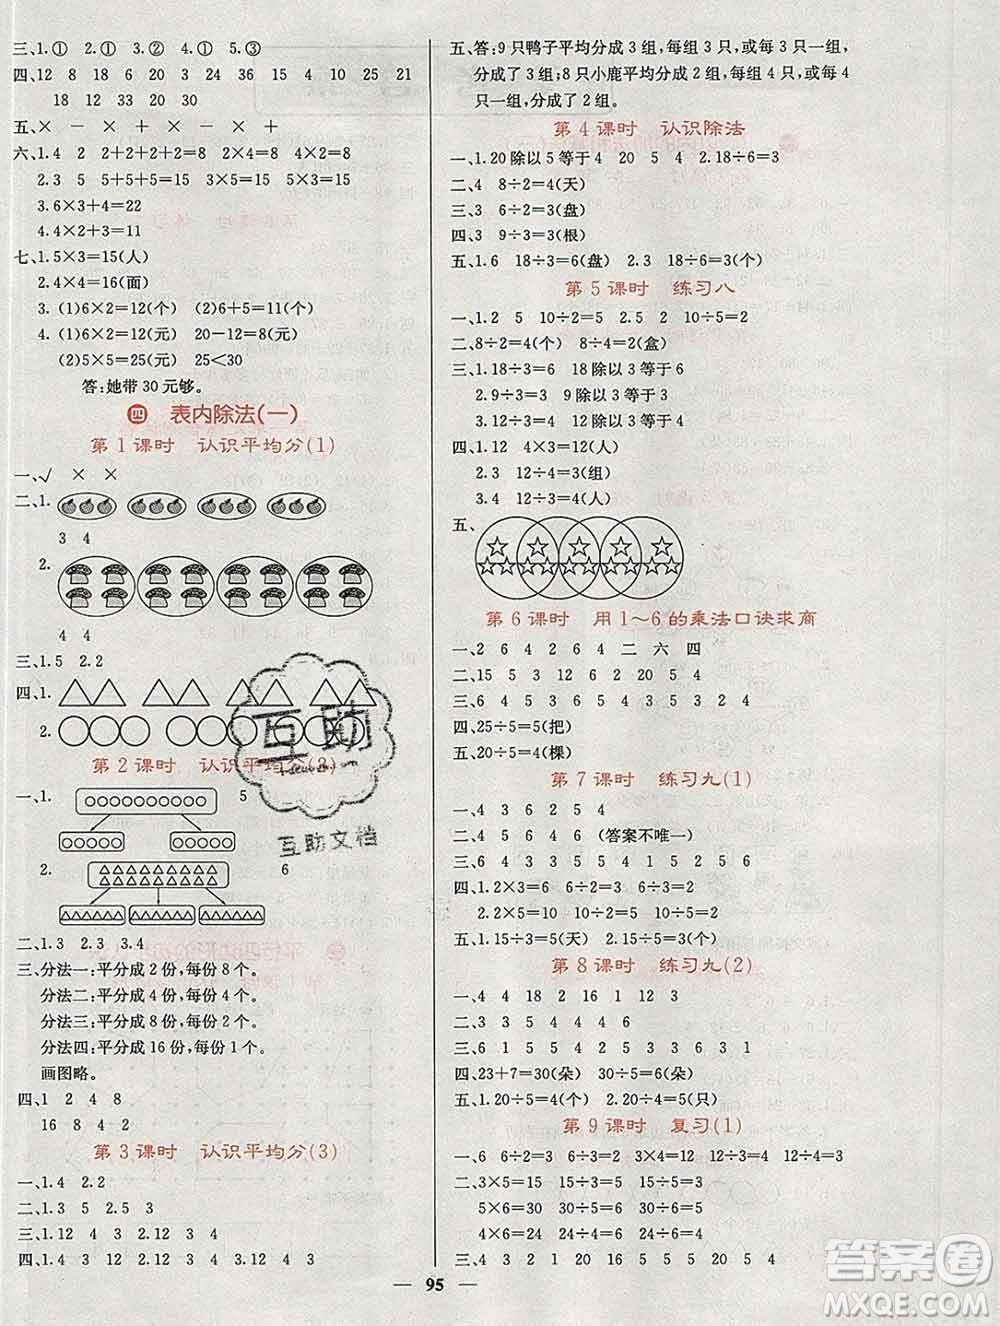 三、1.① 2.① 3.② 4.① 5.③
四、12 8 18 6 20 3 24 36 15 4 10 25 21
18 12 33 20 30
五、× － × － ＋ × － × － × ＋
六、1.4 2 2+2+2+2=8 2×4=8 4×2=8
2.3 5 5+5+5=15 3×5=15 5×3=15
3.6×3+4=22
4.4×2+3=11
七、1.5×3=15(人)
2.4×4=16(面)
3. (1)6×2=12(个) (2)6+5=11(个)
4. (1)6×2=12(元) 20-12=8(元)
(2)5×5=25(元) 25<30
答:她带 30 元够。
四 表内除法(一)
第 1 课时 认识平均分(1)
一、√ × ×
二、1.
3 4
2.
4 4
三、1.5 2.2
四、1.
2.
第 2 课时 认识平均分(2)
一、1. 5
2. 6
二、1.3 2.3 3.4
三、分法一:平分成 2 份,每份 8 个。
分法二:平分成 4 份,每份 4 个。
分法三:平分成 8 份,每份 2 个。
分法四:平分成 16 份,每份 1 个。
画图略。
四、1 2 4 8
16 8 4 2
第 3 课时 认识平均分(3)
一、1.4 2.2
二、1.5 3 2.5 3
三、1.12 4 3 2.12 3 4
四、1.4 3 12 2.12 3 4 3.12 4 3
五、答:9 只鸭子平均分成 3 组,每组 3 只,或每 3 只一组,
分成了 3 组;8 只小鹿平均分成 2 组,每组 4 只,或每 4
只一组,分成了 2 组。
第 4 课时 认识除法
一、1.20 除以 5 等于 4 20 5 4 2.18÷6=3
二、4 8÷2=4(天)
三、3 6÷2=3(盘)
四、3 9÷3=3(根)
五、1.6 18÷3=6(盘) 2.3 18÷6=3(个)
第 5 课时 练习八
一、1.2 5 10÷2=5 2.5 2 10÷5=2
二、8÷2=4(个) 8÷4=2(盒)
三、1.18÷3=6 18 除以 3 等于 6
2.9÷3=3 9 除以 3 等于 3
3.12÷3=4 12 除以 3 等于 4
四、1.12 4×3=12(人)
2.3 12÷4=3(组)
3.4 12÷3=4(人)
五、
第 6 课时 用 1～6 的乘法口诀求商
一、2 6 4 2 6 4 二 六 四
二、15 5 3 12 6 2 20 5 4
三、3 6 2 4 6 5 4 3 5 3 2 4
四、25÷5=5(把)
五、20÷5=4(棵)
第 7 课时 练习九(1)
一、4 3 6 2 5 4
二、4 5 6 4 6 (答案不唯一)
三、6 6 2 4 4 5 1 3 1 2 3 4
四、1.2×3=6 6÷2=3 6÷3=2
2.2×5=10 10÷5=2 10÷2=5
五、1.15÷3=5(天) 2.15÷5=3(个)
第 8 课时 练习九(2)
一、4 4 18 2 16 1 12 3
二、3 3 5 4 4 4 6
三、6 1 5 4 5 2 3 5 3 6 3 1
四、23+7=30(朵) 30÷5=6(朵)
五、1.20÷5=4(个) 2.20÷4=5(只)
第 9 课时 复习(1)
一、6 6÷2=3 6÷3=2 3×4=12 12÷3=4 12÷4=3
二、3×5=15 15÷3=5 15÷5=3
5×6=30 30÷5=6 30÷6=5
4×6=24 24÷4=6 24÷6=4
三、4 3 1 2 20 16 5 5 15 5 4
95
互助
互助文档
答案圈
MXQE.COM